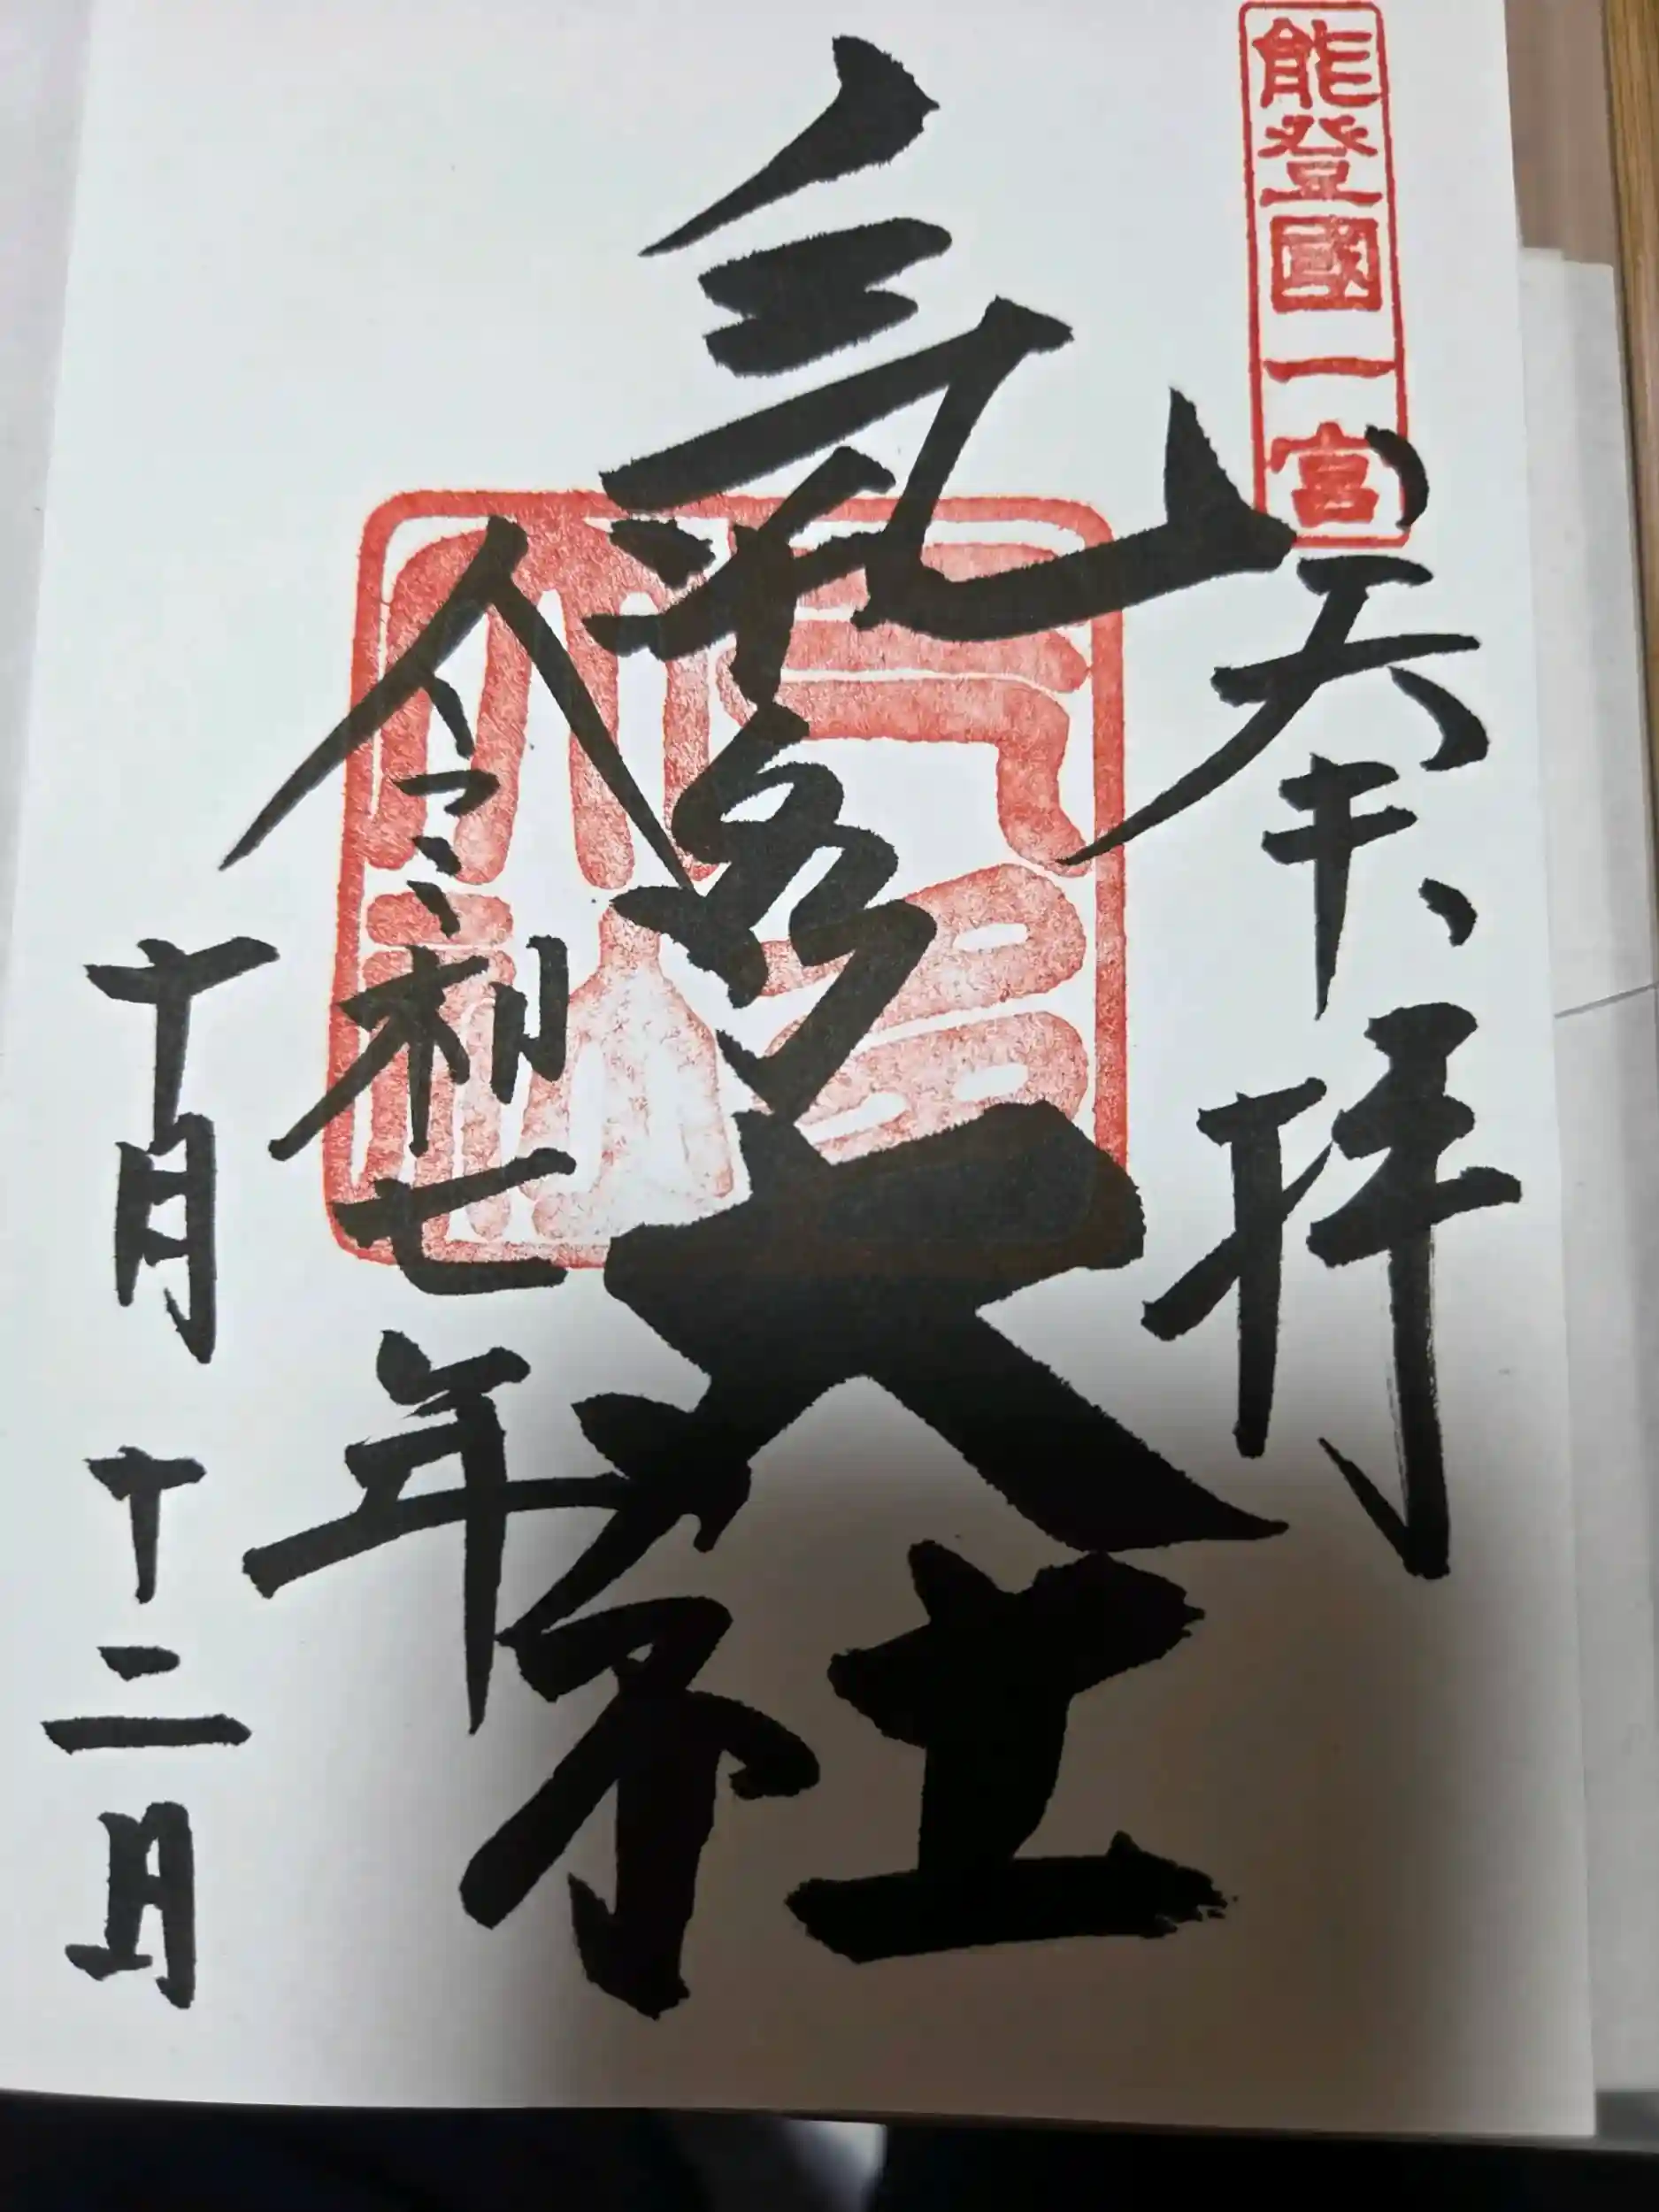 能登國一宮
奉拝
氣多大社
令和七年
十月十二日